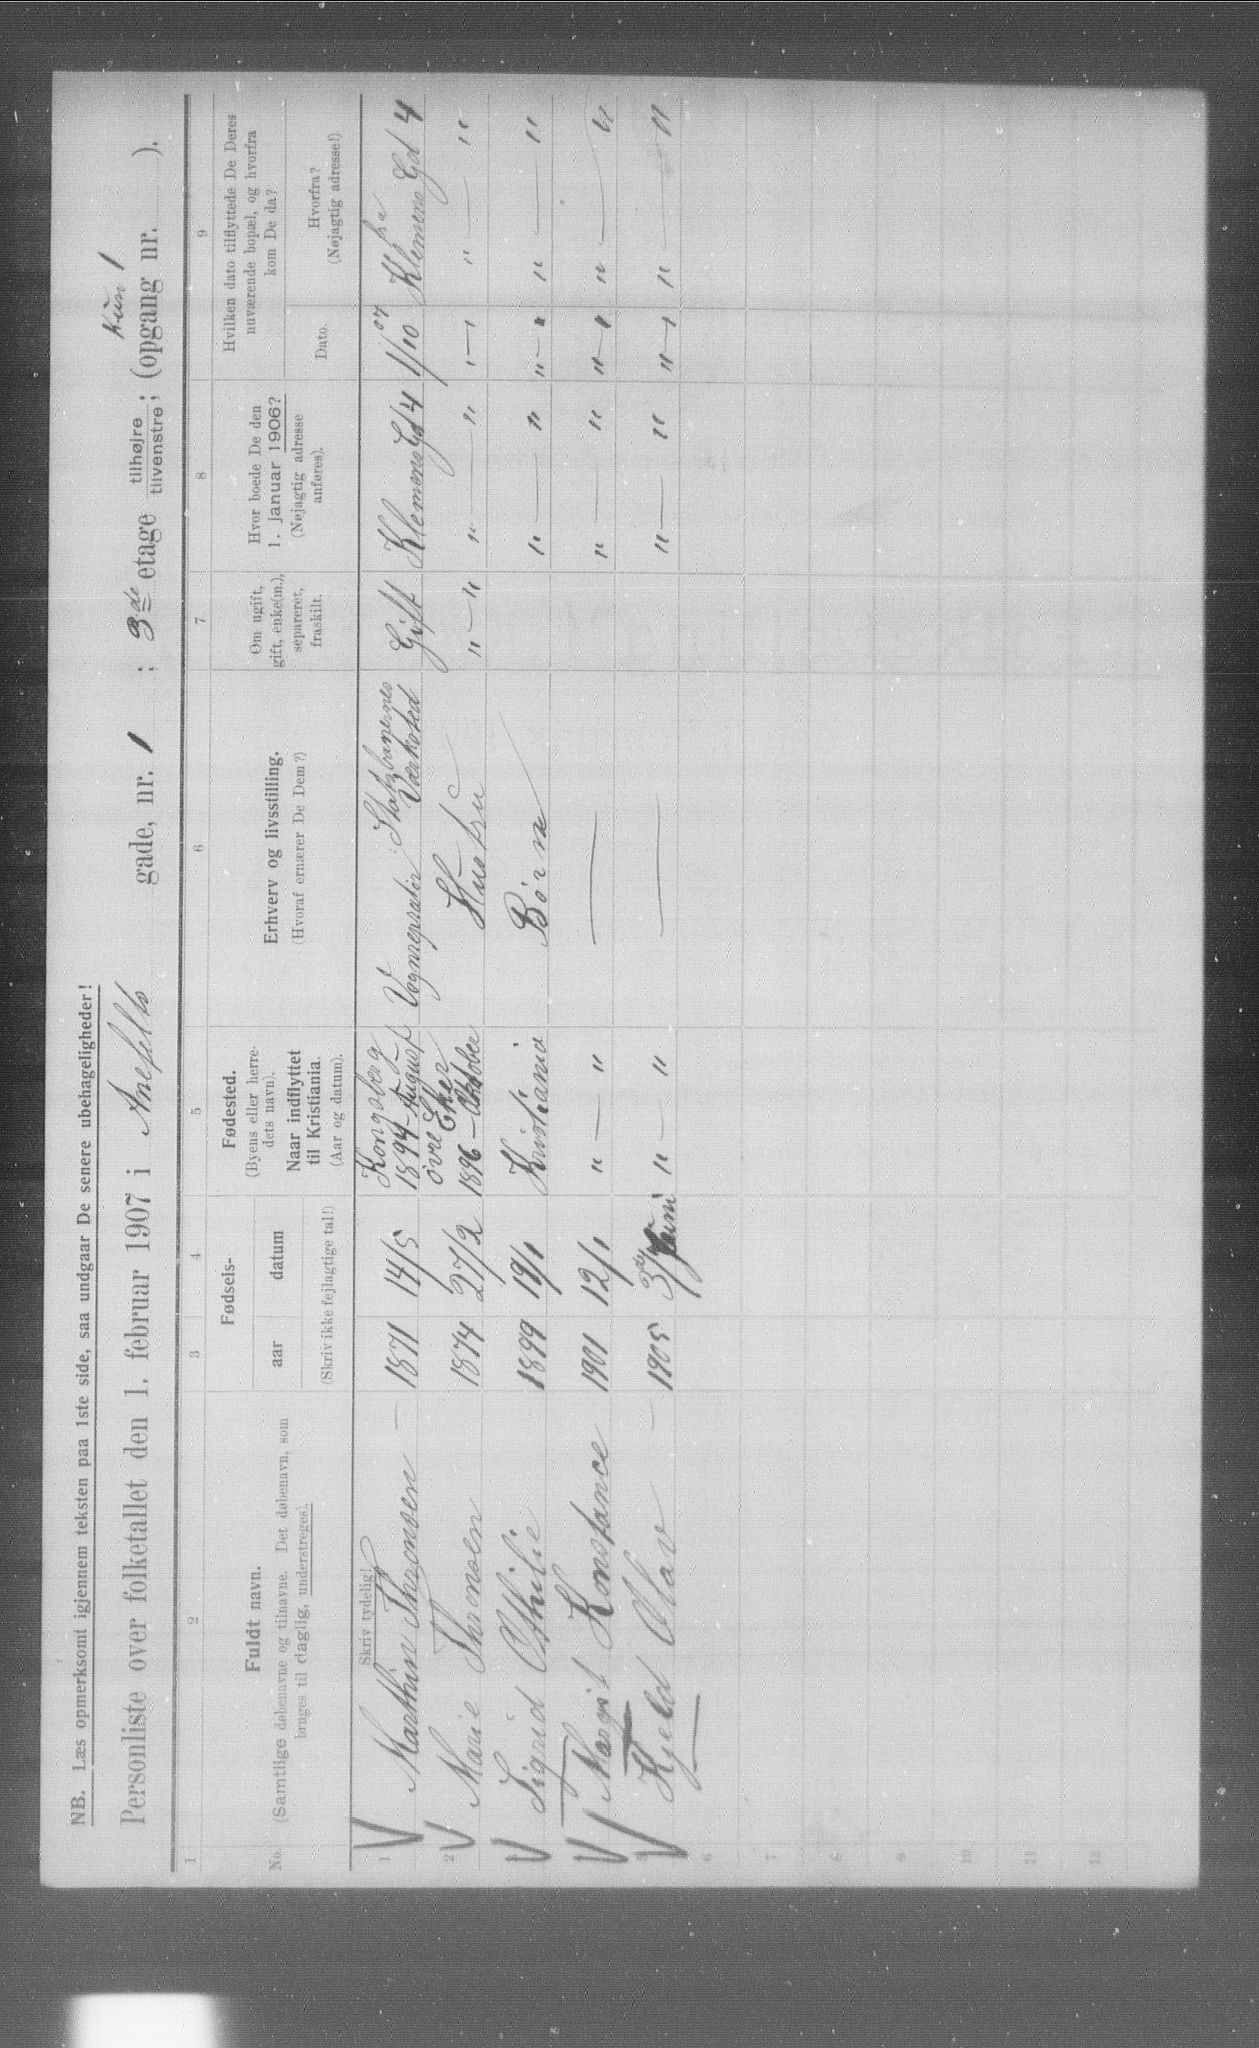 NB. Læs opmerksomt igjennem teksten paa 1ste side, saa undgaar De senere ubehageligheder!
Kun 1
Personliste over folketallet den 1. februar 1907 i Anefeldts gade, nr. 1 ; 3de etage tilhøjre tilvenstre; (opgang nr. ).
1 2 3 4 5 6 7 8 9
No.
Fuldt navn.
(Samtlige døbenavne og tilnavne. Det døbenavn, som
bruges til daglig, understreges).
Fødsels-
aar datum
(Skriv ikke fejlagtige tal!)
Fødested.
(Byens eller herre-
dets navn).
Naar indflyttet
til Kristiania.
(Aar og datum).
Erhverv og livsstilling.
(Hvoraf ernærer De Dem?)
Om ugift,
gift, enke(m.),
separeret,
fraskilt.
Hvor boede De den
1. januar 1906?
(Nøjagtig adresse
anføres).
Hvilken dato tilflyttede De Deres
nuværende bopæl, og hvorfra
kom De da?
Dato.
Hvorfra?
(Nøjagtig adresse!)
Skriv tydelig!
1 Marthin Thronsen 1871 14/5 Kongsberg 1894 - August Vognrepratør Statsbanernes Værksted Gift Klemens Gd 4 1/10 07 Kra Klemens Gd 4
2 Marie Thronsen 1874 27/2 Øvre Eker 1896 - Oktober Hustru " — " " — " " — " " — "
Sigrid Othilie 1899 19/1 Kristiania Børn " — " " — " " — "
Margit Konstance 1901 12/1 " — " — " — " " — " " — "
5 Kjeld Olav 1905 3/ Juni " — " — " — " " — " " "
6
7
8
9
10
11
12